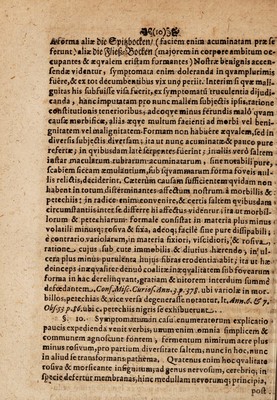 (10)
forma aliæ die Spitzbocken, (faciem enim acuminatam præ se
ferunt) aliæ die Fließ-Bocken (majorem in corpore ambitum oc-
cupantes & æqualem cristam formantes) Nostræ benignis accen-
sendæ videntur, symptomata enim doleranda in quamplurimis
fuere, & ex tot decumbentibus vix unq; periit. Interim si quæ mali-
gnitas his subfuisse visa fuerit, ex symptomatū truculentia dijudi-
canda, hanc imputatam pro nunc mallem subjectis ipsi ratione
constitutionis tenerioribus, adeoq; minus ferundis malo quam
causæ morbificæ, alias æque multum facienti ad morbi vel beni-
gnitatem vel malignitatem. Formam non habuere æqualem, sed in
diversis subjectis diversam; ita ut nunc acuminatæ & pauco pure
refertæ; in quibusdam latè serpentes fuerint; in aliis verò saltem
instar macularum rubrarum acuminatarum, sine notabili pure,
scabiem siccam æmulantium, sub squammarum forma foveis nul-
lis relictis, deciderint. Cæterum causam sufficientem quidam non
habent in totum disterminantes affectum nostrum à morbillis &
petechiis: in radice enim convenire, & certis saltem quibusdam
circumstantiis inter se differre hi affectus videntur: ita ut morbil-
lorum & petechiarum formale consistat in materia plus minus
volatili minusq; rosiva & fixa, adeoq; facilè sine pure dissipabili;
è contrario variolarum, in materia fixiori, viscidiori, & rosiva
ratione cujus sub cute immobilis & diutius hærendo, in ul-
cera plus minus purulenta hujus fibras erodentia abit; ita ut hæ
deinceps inæqualitè denuò coalitæ inæqualitatem sub fovearum
forma in hac derelinquant, gratiam & nitorem interdum summè
defœdantem.
petechias & vice versa degenerasse notantur,
Obs. 33 p. 56. ubi c. petechiis nigris se exhibuerunt.
§. 10. Symptomatum in casu enumeratorum explicatio
paucis expedienda venit verbis, unum enim omnia simplicem &
communem agnoscunt fontem, fermentum nimirum aere plus
minus rosivum, pro partium diversitate saltem, nunc in hoc, nunc
in aliud se transformans pathêma. Quatenus enim hoc qualitate
rosiva & morsicante insignitum, ad genus nervosum, cerebrio, in
specie defertur membranas, hinc medullam nervorum; principia,
post-